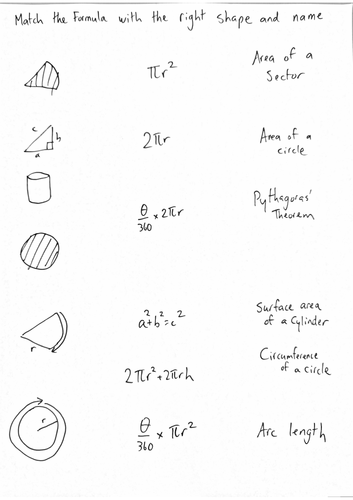 Match the Formula with the right shape and name
πr²
Area of a
Sector
c
b
a
2πr
Area of a
circle
θ/360 × 2πr
Pythagoras'
Theorem
r
a²+b²=c²
Surface area
of a Cylinder
2πr²+2πrh
Circumference
of a circle
r
θ/360 × πr²
Arc length